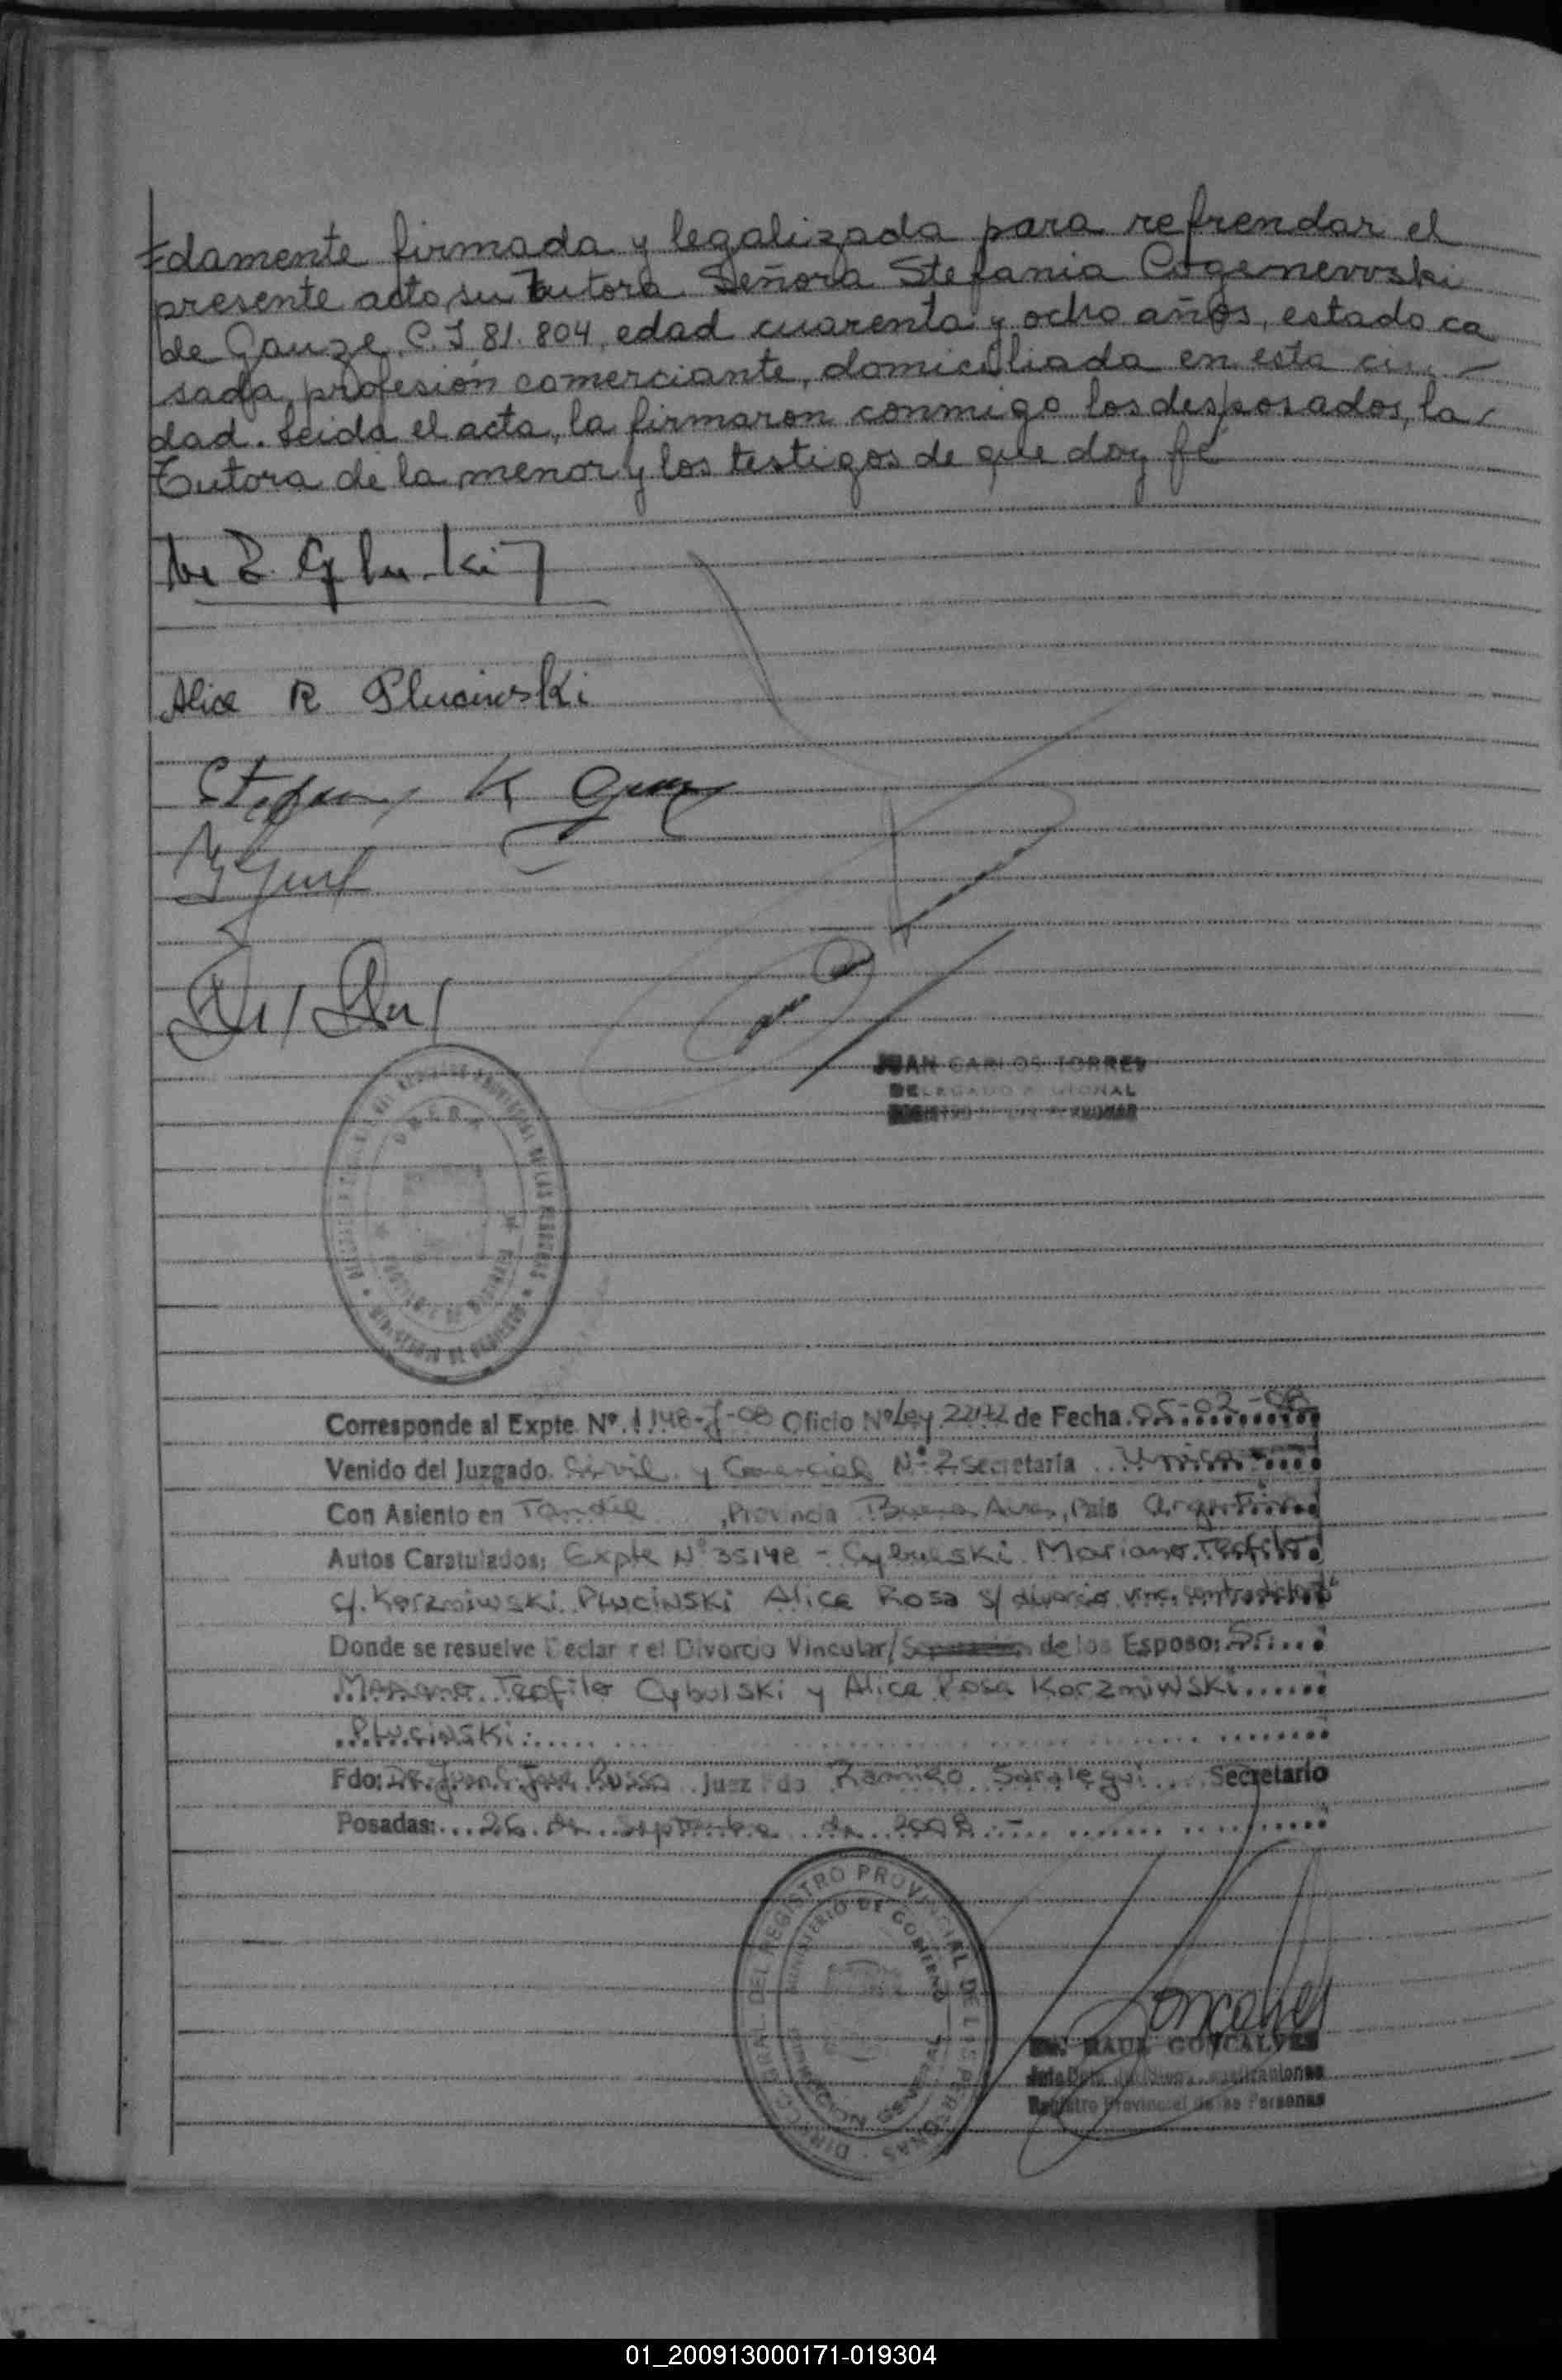 damente firmada y legalizada para refrendar el
presente acto, su Tutora Señora Stefania Cogenevvski
de Gauze, C.I 81.804, edad cuarenta y ocho años, estado ca
sada, profesión comerciante, domiciliada en esta ciu
dad. Leida el acta, la firmaron conmigo los desposados, la
Tutora de la menor y los testigos de que doy fé
Alice R Plucinski
JUAN CARLOS TORRES
DELEGADO
Corresponde al Expte. Nº. 1148-J-08 Oficio Nº Ley 22172 de Fecha. 05-02-08
Venido del Juzgado. Civil y Comercial Nº 2 Secretaría Unica
Con Asiento en Tandil, Provincia Buenos Aires, País Argentina
Autos Caratulados; Expte Nº 35148 - Cybulski Mariano Teofilo
c/. Korzniwski Plucinski Alice Rosa s/ divorcio vinc. contradictorio
Donde se resuelve Declarar el Divorcio Vincular/Separación de los Esposos: Sr.
Mariano Teofilo Cybulski y Alice Rosa Korzniwski
Plucinski
Fdo: Dr. José Russo Juez Fdo Ramiro Saralegui Secretario
Posadas: 26 de Septiembre de 2008
DIRECC. GRAL. DEL REGISTRO PROVINCIAL DE LAS PERSONAS
MINISTERIO DE GOBIERNO
Goncalves
RAUL GONCALVES
Registro Provincial de las Personas
01_200913000171-019304